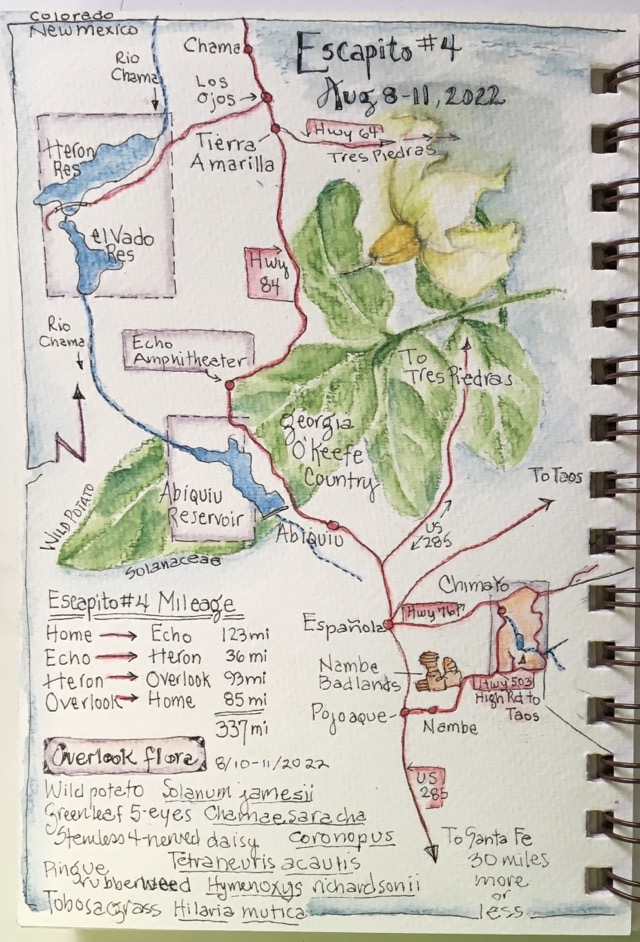 Colorado
New mexico
Rio
Chama
Chama
Escapito #4
Aug 8-11, 2022
Los
Ojos
Hwy 64
Tres Piedras
Tierra
Amarilla
Heron
Res
el Vado
Res
Hwy
84
Rio
Chama
Echo
Amphitheater
To
Tres Piedras
N
Georgia
O'Keefe
Country
To Taos
Abiquiu
Reservoir
Wild Potato
Solanaceae
Abiquiu
US
285
Chimayo
Escapito #4 Mileage
Home → Echo 123 mi
Echo → Heron 36 mi
Heron → Overlook 93 mi
Overlook → Home 85 mi
337 mi
Española
Hwy 76
Nambe
Badlands
Hwy 503
High Rd to
Taos
Pojoaque
Nambe
US
285
Overlook flora 8/10-11/2022
Wild potato Solanum jamesii
Greenleaf 5-eyes Chamaesaracha
coronopus
Stemless 4-nerved daisy
Tetraneuris acaulis
Pingue
rubberweed Hymenoxys richardsonii
Tobosagrass Hilaria mutica
To Santa Fe
30 miles
more
or
less